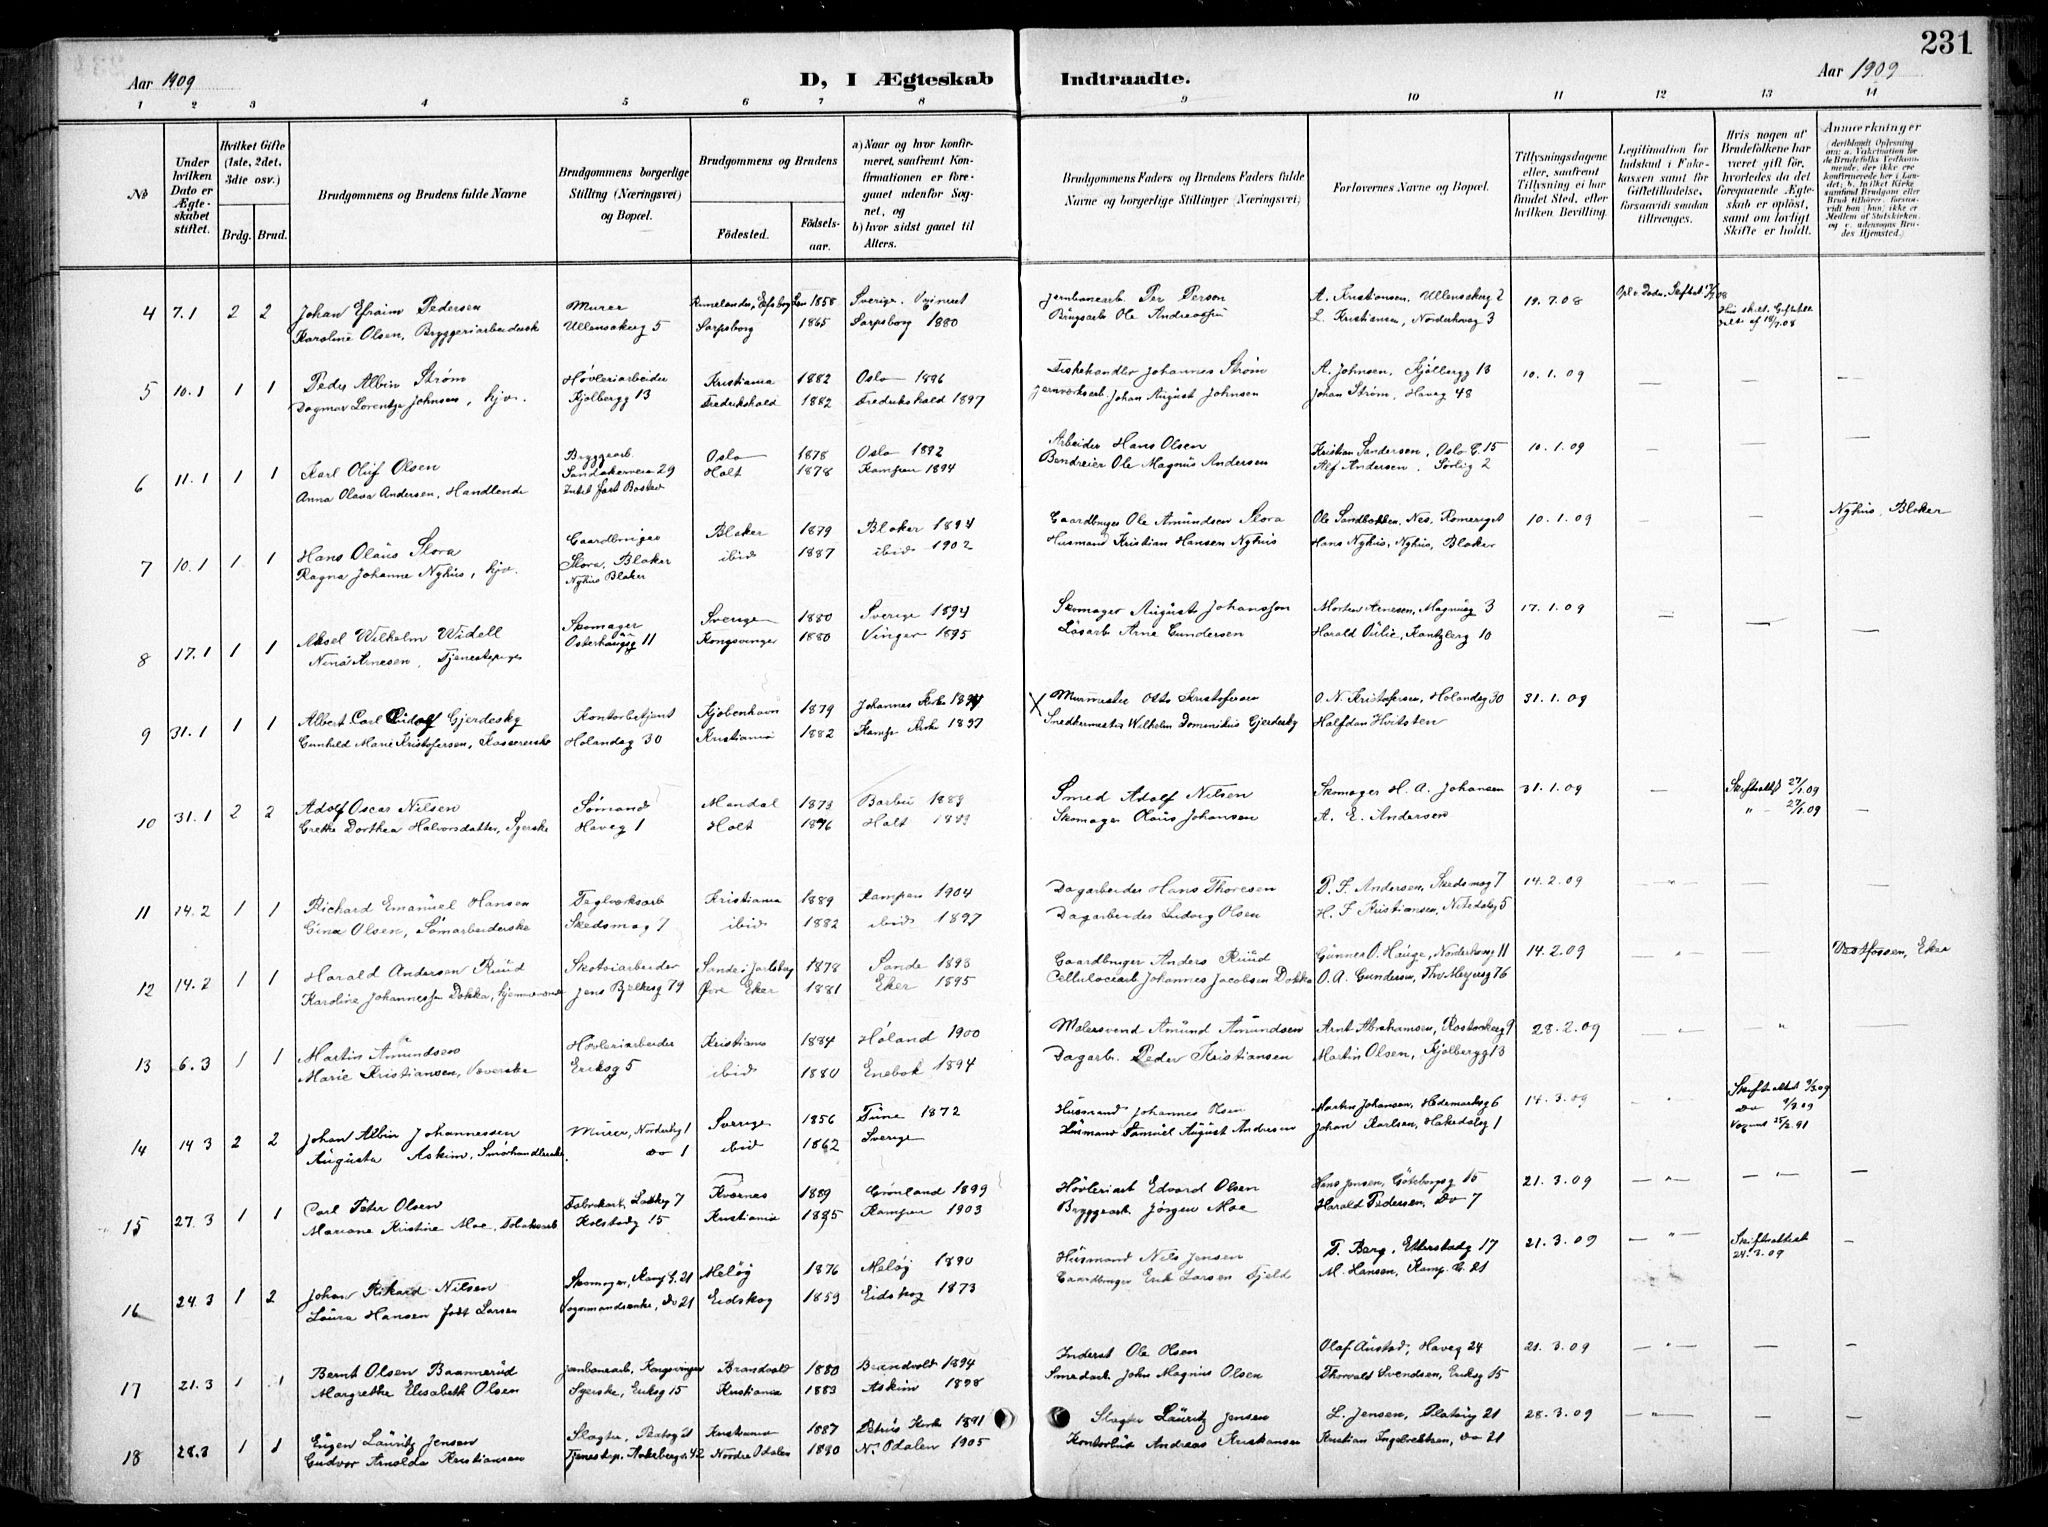 231
Aar 1909
D, I Ægteskab Indtraadte.
Aar 1909
1 2 3 4 5 6 7 8 9 10 11 12 13 14
No
Under hvilken Dato er Ægteskabet stiftet.
Hvilket Gifte (1ste, 2det, 3die osv.)
Brdg. Brud.
Brudgommens og Brudens fulde Navne
Brudgommens borgerlige Stilling (Næringsvei) og Bopæl.
Brudgommens og Brudens
Fødested.
Fødselsaar.
a) Naar og hvor konfirmeret, saafremt Konfirmationen er foregaaet udenfor Sognet, og
b) hvor sidst gaaet til Alters.
Brudgommens Faders og Brudens Faders fulde Navne og borgerlige Stillinger (Næringsvei)
Forlovernes Navne og Bopæl.
Tillysningsdagene eller, saafremt Tillysning ei har fundet Sted, efter hvilken Bevilling.
Legitimation for Indskud i Enkekassen samt for Giftetilladelse, forsaavidt saadan tiltrænges.
Hvis nogen af Brudefolkene har været gift før, hvorledes da det foregaaende Ægteskab er opløst, samt om lovligt Skifte er holdt.
Anmærkninger
4 7.1 2 2 Johan Efraim Pedersen Murer 1858 Sverige Jernbanearb. Per Person A. Kristiansen, Ullensakerg 2 19.7.08
Karoline Olsen, Bryggeriarbeidersk Ullensakerg 5 Sarpsborg 1865 Sarpsborg 1880 Brugsarb Ole Andreassen L. Kristiansen, Norderhovg 3
5 10.1 1 1 Peder Albin Strøm Høvleriarbeider Kristiania 1882 Oslo 1896 Fiskehandler Johannes Strøm A. Johnsen, Kjølbergg 13 10.1.09
Dagmar Lorentze Johnsen, hjv. Kjølbergg 13 Fredrikshald 1882 Fredrikshald 1897 Jernverksarb Johan August Johnsen Johan Strøm, Haveg 48
6 11.1 1 1 Karl Oluf Olsen Bryggearb. Oslo 1878 Oslo 1892 Arbeider Hans Olsen Kristian Sandersen, Oslo G. 15 10.1.09
Anna Olava Andersen, Handlende Sandakerveien 29 Holt 1878 Kampen 1894 Bendreier Ole Magnus Andersen Alf Andersen, Sørlig 2
Intet fast Bosted
7 10.1 1 1 Hans Olaus Slora Gaardbruger Blaker 1879 Blaker 1894 Gaardbruger Ole Amundsen Slora Ole Sandbakken, Nes, Romeriget 10.1.09 Nyhus, Blaker
Ragna Johanne Nyhus, hjv. Slora, Blaker ibid 1887 ibid 1902 Husmand Kristian Hansen Nyhus Hans Nyhus, Nyhus, Blaker
Nyhus Blaker
8 17.1 1 1 Aksel Wilhelm Widell Skomager Sverige 1880 Sverige 1894 Skomager August Johansson Morten Arnesen, Magnusg 3 17.1.09
Nina Arnesen, Tjenestepige Østerhausg 11 Kongsvinger 1880 Vinger 1895 Løsarb Arne Gundersen Harald Julie, Kantzlerg 10
9 31.1 1 1 Albert Carl Gjerdesky Kontorbetjent Kjøbenhavn 1879 Johannes Kirke 1894 X Murmester Otto Kristofersen O. N. Kristofersen, Holandsg 30 31.1.09
Gunhild Marie Kristofersen, Kassererske Holandsg 30 Kristiania 1882 Kampe Kirke 1897 Snedkermester Wilhelm Dominikus Gjerdesky Halfdan Hvitsten
10 31.1 2 2 Adolf Oscar Nilsen Sømand Mandal 1873 Barbu 1889 Smed Adolf Nilsen Skomager H. A. Johansen 31.1.09 27/1.09
Grethe Dorthea Halvorsdatter, Syerske Haveg 1 Holt 1876 Holt 1889 Skomager Olaus Johansen A. E. Andersen " 27/1.09
11 14.2 1 1 Richard Emanuel Hansen Teglverksarb Kristiania 1889 Kampen 1904 Dagarbeider Hans Thoresen P. F. Andersen, Skedsmog 7 14.2.09
Gina Olsen, Sømarbeiderske Skedsmog 7 ibid 1882 ibid 1897 Dagarbeider Ludvig Olsen H. F. Kristiansen, Nitedalsg 5
12 14.2 1 1 Harald Andersen Ruud Skotøiarbeider Sande i Jarlsberg 1878 Sande 1893 Gaardbruger Anders Ruud Gunnes O. Hauge, Norderhovg 11 14.2.09 Hossen, Eker
Karoline Johannessen Dokka, hjemmeværende Jens Bjelkesg 79 Øvre Eker 1881 Eker 1895 Cellulosearb Johannes Jacobsen Dokka O. A. Gundersen, Thv Meyersg 76
13 6.3 1 1 Martin Amundsen Høvleriarbeider Kristiania 1884 Høland 1900 Malersvend Amund Amundsen Arnt Abrahamsen, Rostockerg 9 28.2.09
Marie Kristiansen, Væverske Eriksg 5 ibid 1880 Enebak 1894 Dagarb. Peder Kristiansen Martin Olsen, Kjølbergg 13
14 14.3 2 2 Johan Albin Johannessen Murer, Norderhovg 1 Sverige 1856 Tune 1872 Husmand Johannes Olsen Martin Johansen, Hedemarksg 6 14.3.09 Skifteattest 9/3.09
Augusta Askim, Smørhandlerske do 1 ibid 1862 Sverige Husmand Samuel August Andersen Johan Karlsen, Hakedalsg 1 Do 9/3.09
25/2.91
15 27.3 1 1 Carl Peter Olsen Fabrikarb, 7 Kværnes 1889 Grønland 1899 Høvleriarb Edvard Olsen Hans Jensen, Göteborgg 15 21.3.09
Mariane Kristine Moe, Tobaksarb Kolstadg 15 Kristiania 1885 Kampen 1903 Bryggearb Jørgen Moe Harald Pedersen, Do 7
16 24.3 1 2 Johan Rikard Nilsen Skomager, Kamp. G. 21 Meløy 1876 Meløy 1890 Husmand Nils Jensen T. Berg, Etterstadg 17 21.3.09 Skifteattest 24.3.09
Laura Hansen født Larsen Vognmandsenke, Do 21 Eidskog 1859 Eidskog 1873 Gaardbruger Erik Larsen Fjeld M. Hansen, Kamp. G. 21
17 21.3 1 1 Bernt Olsen Baannerud Jernbanearb, Kongsvinger Brandvold 1880 Brandvold 1894 Inderst Ole Olsen Olaf Austad, Haveg 24 21.3.09
Margrethe Elisabeth Olsen Syerske, Eriksg 15 Kristiania 1883 Askim 1898 Smedarb John Magnus Olsen Thorvald Svendsen, Eriksg 15
18 28.3 1 1 Eugen Lauritz Jensen Slagter, Platoug 21 Kristiania 1887 Petrus Kirke 1891 Slagter Lauritz Jensen L. Jensen, Platoug 21 28.3.09
Gudvor Arnolda Kristiansen Tjenestep, Akersbergv 42 Nordre Odalen 1880 N. Odalen 1905 Kontorbud Andreas Kristiansen Kristian Ingebrektsen, Do 21